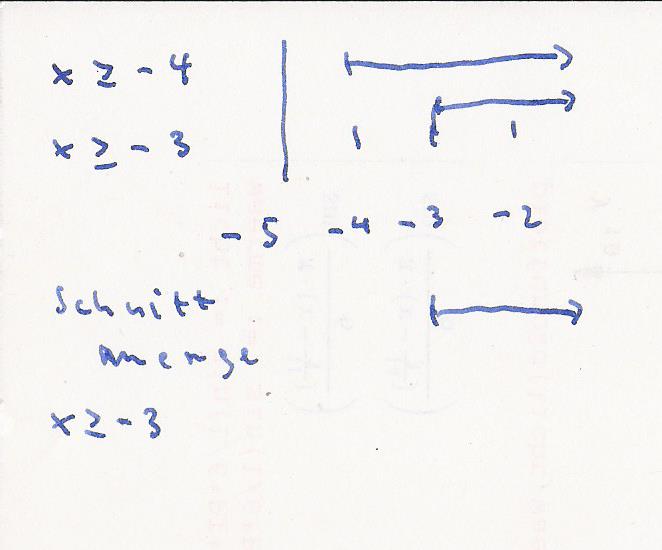 x ≥ - 4
x ≥ - 3
- 5 - 4 - 3 - 2
Schnitt
menge
x ≥ - 3